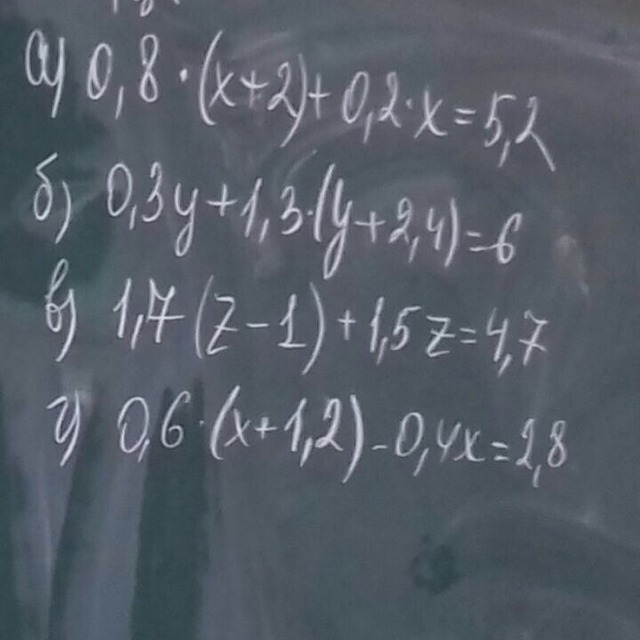 а) 0,8·(x+2)+0,2·x=5,2
б) 0,3y+1,3·(y+2,4)=6
в) 1,7(z-1)+1,5z=4,7
г) 0,6·(x+1,2)-0,4x=2,8